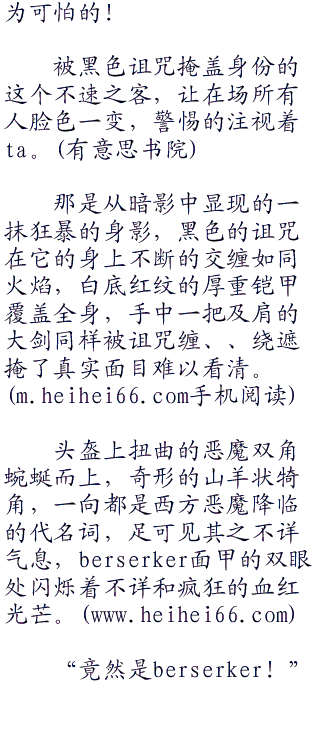 为可怕的！
被黑色诅咒掩盖身份的
这个不速之客，让在场所有
人脸色一变，警惕的注视着
ta。(有意思书院)
那是从暗影中显现的一
抹狂暴的身影，黑色的诅咒
在它的身上不断的交缠如同
火焰，白底红纹的厚重铠甲
覆盖全身，手中一把及肩的
大剑同样被诅咒缠、、绕遮
掩了真实面目难以看清。
(m.heihei66.com手机阅读)
头盔上扭曲的恶魔双角
蜿蜒而上，奇形的山羊状犄
角，一向都是西方恶魔降临
的代名词，足可见其之不详
气息，berserker面甲的双眼
处闪烁着不详和疯狂的血红
光芒。(www.heihei66.com)
“竟然是berserker！”